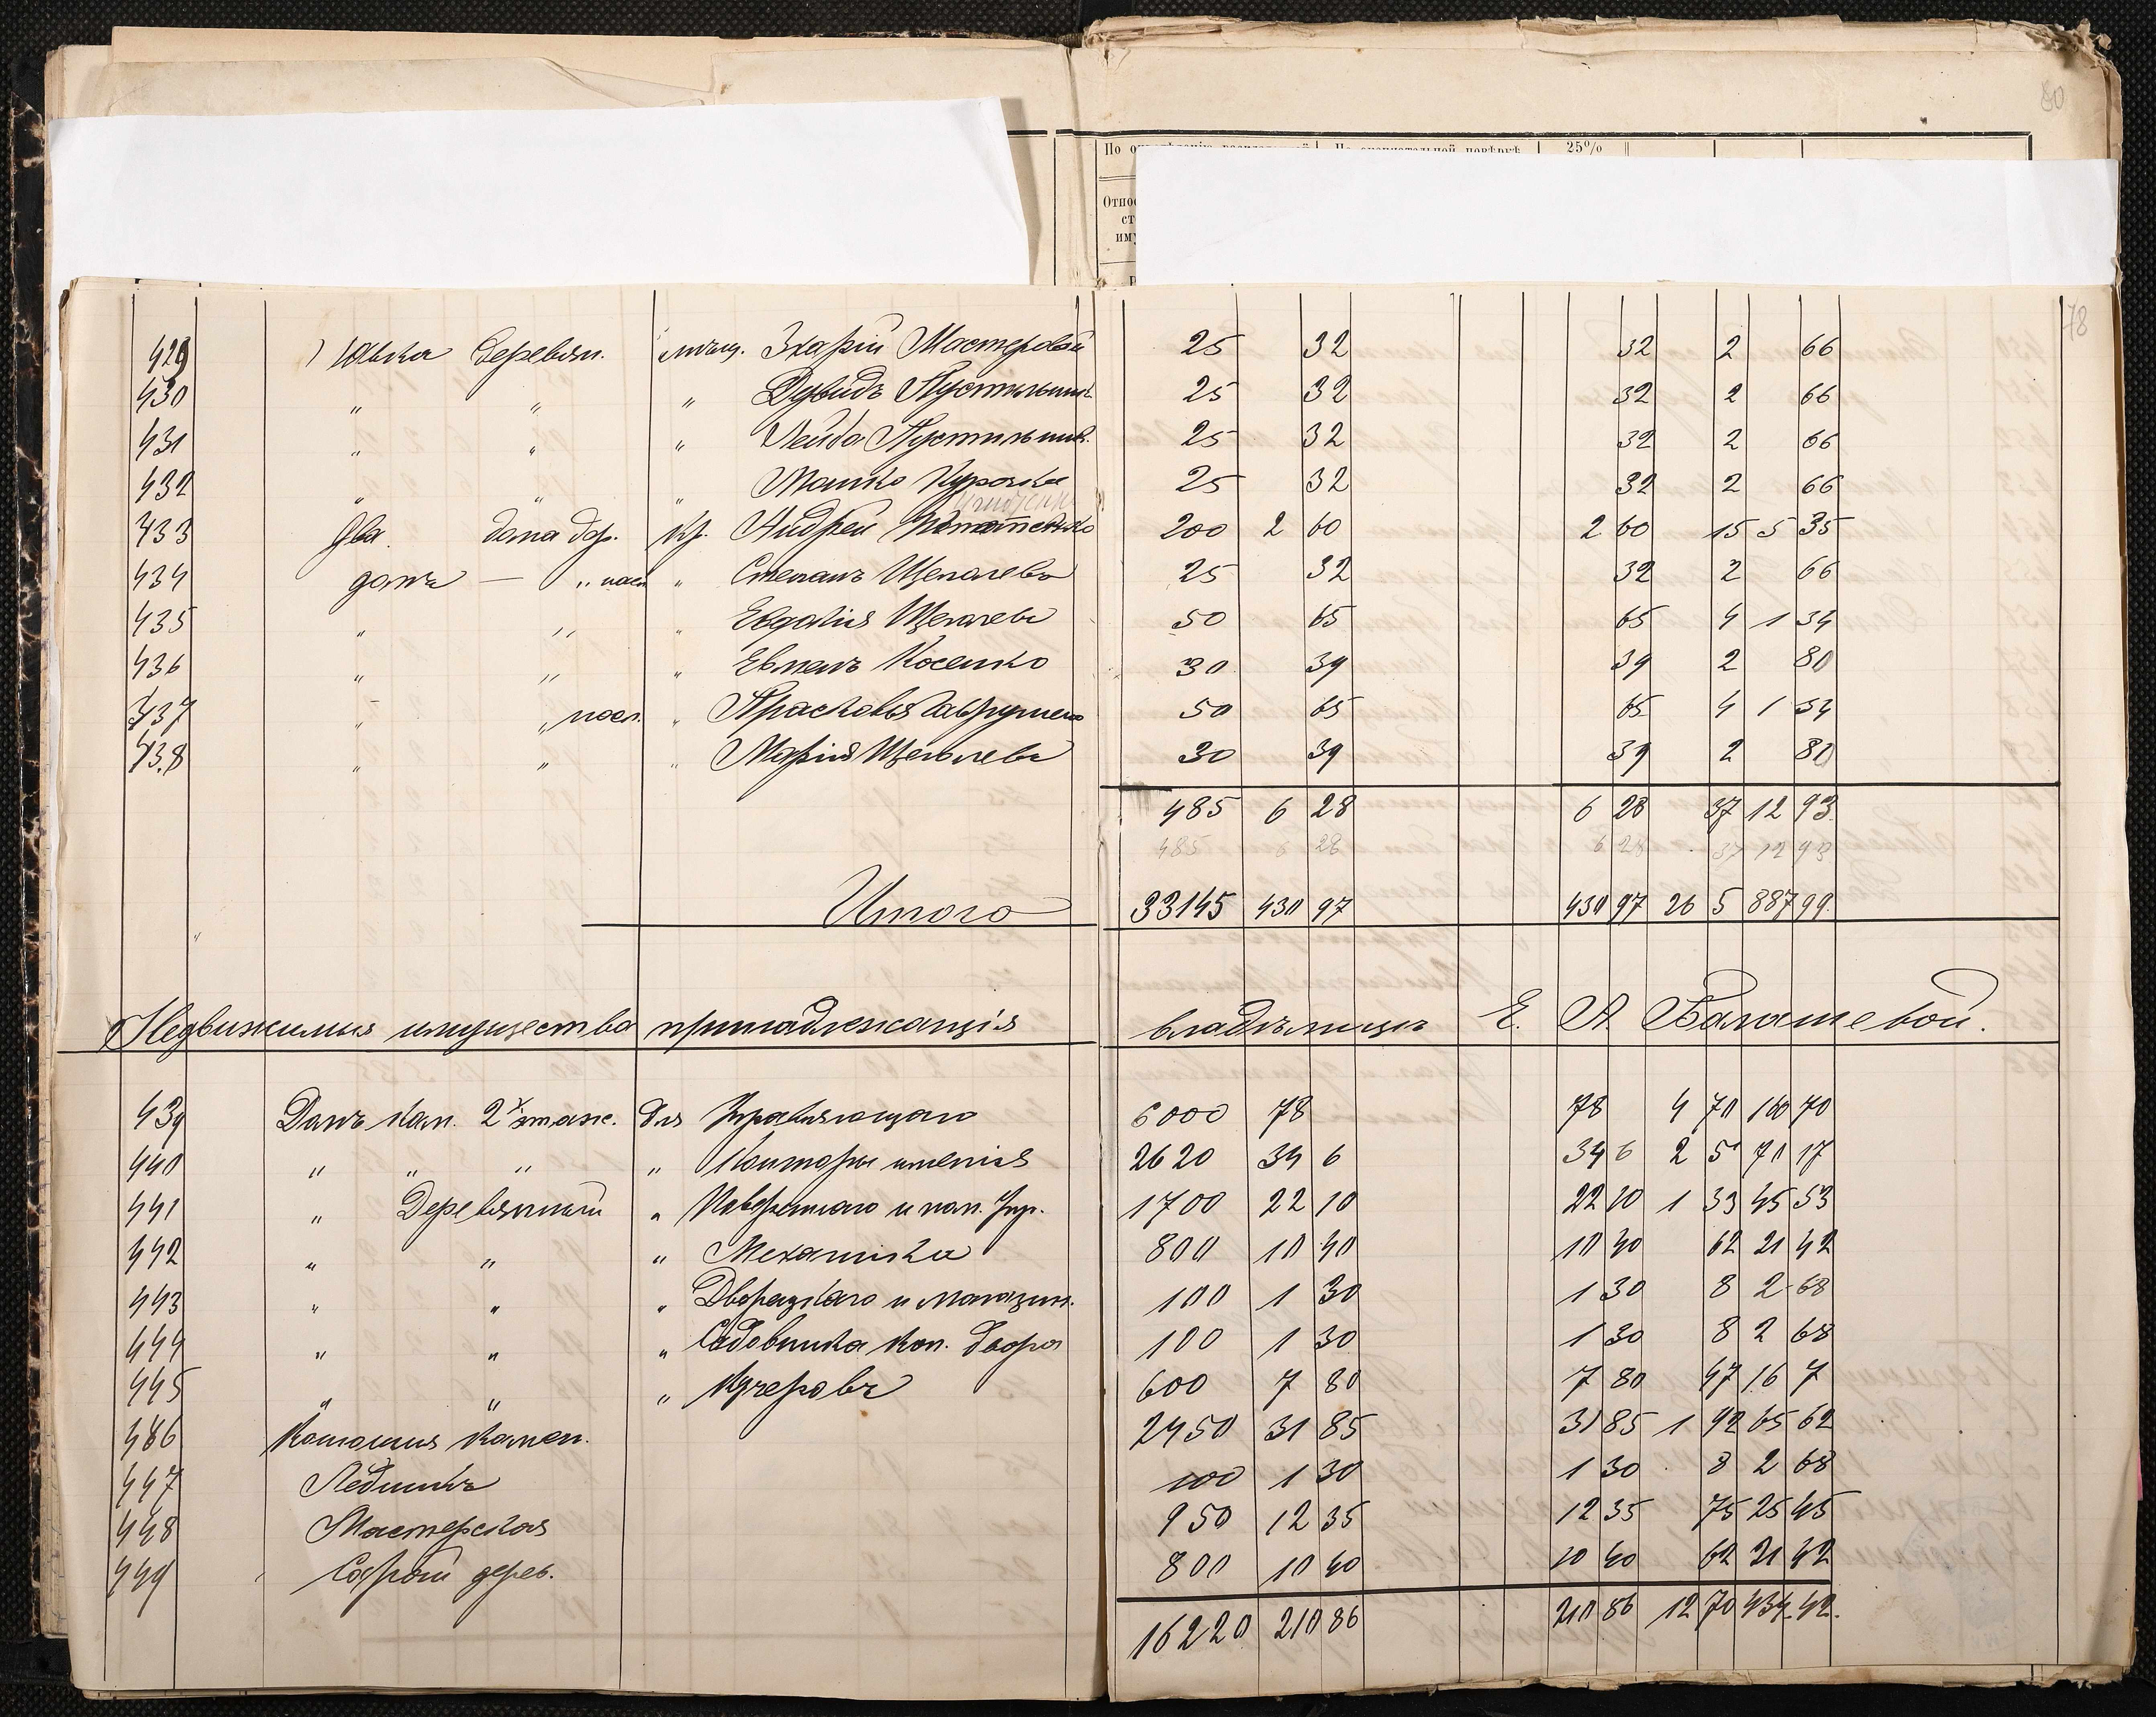 80
По
По окончательной повѣркѣ
25%
Относ
ст
иму
78
429 Лавка деревян. мѣщ. Мастеровой 25 32 32 2 66
430 " " " Пустильник 25 32 32 2 66
431 " " " Лейба Пустильник. 25 32 32 2 66
432 " " " Машко 25 32 32 2 66
433 Два дома дер. кр. Андрей 200 2 60 2 60 15 5 35
434 домъ — " насл " Степанъ Щеголевъ 25 32 32 2 66
435 " " " Щеголевъ 50 65 65 4 1 34
436 " " " Косенко 30 39 39 2 80
437 " " насл. " Прасковья 50 65 65 4 1 34
438 " " " Марія Щеголева 30 39 39 2 80
485 6 28 6 28 37 12 93
485 6 28 6 28 37 12 93
Итого 33145 430 97 430 97 26 5 887 99
Недвижимыя имущества принадлежащія владѣлицѣ Е. А Балашевой.
439 Домъ кам. 2х этаж. для Управляющаго 6000 78 78 4 70 160 70
440 " " " " Конторы имѣнія 2620 34 6 34 6 2 5 70 17
441 " Деревянный " и пом. Упр. 1700 22 10 22 10 1 33 45 53
442 " " " Механика 800 10 40 10 40 62 21 42
443 " " " Дворецкаго и магазин. 100 1 30 1 30 8 2 68
444 " " " Садовника кон. двора 100 1 30 1 30 8 2 68
445 " " " Кучеровъ 600 7 80 7 80 47 16 7
486 Конюшня камен. 2450 31 85 31 85 1 92 65 62
447 Ледникъ 100 1 30 1 30 8 2 68
448 Мастерская 950 12 35 12 35 75 25 45
449 Сарай дерев. 800 10 40 10 40 62 21 42
16220 210 86 210 86 12 70 434 42.